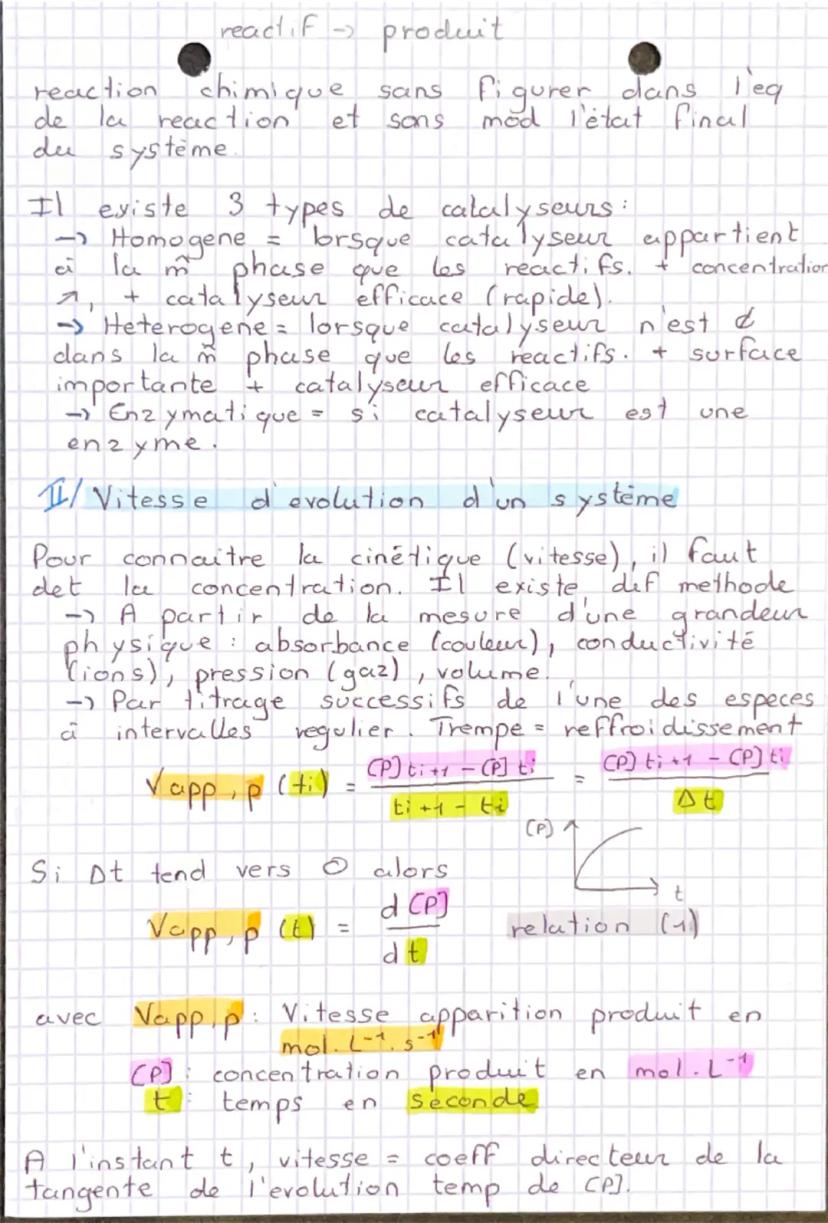 reactif → produit
reaction chimique sans figurer dans l'eq
de la reaction et sans mod l'état final
du système.
Il existe 3 types de catalyseurs :
→ Homogene = lorsque catalyseur appartient
à la m̂ phase que les reactifs. + concentration
↗, + catalyseur efficace (rapide).
→ Heterogene = lorsque catalyseur n'est
dans la m̂ phase que les reactifs. + surface
importante + catalyseur efficace
→ Enzymatique = si catalyseur est une
enzyme.
II/ Vitesse d'evolution d'un système
Pour connaitre la cinétique (vitesse), il faut
det la concentration. Il existe dif methode
→ A partir de la mesure d'une grandeur
physique : absorbance (couleur), conductivité
(ions), pression (gaz), volume.
→ Par titrage successifs de l'une des especes
à intervalles regulier. Trempe = reffroidissement
Vapp, p (ti) = [P] ti+1 - [P] ti / ti+1 - ti = [P] ti+1 - [P] ti / Δt
[P]
t
Si Δt tend vers 0 alors
Vapp, p (t) = d[P] / dt relation (1)
avec Vapp, p : Vitesse apparition produit en
mol. L⁻¹. s⁻¹
[P] : concentration produit en mol. L⁻¹
t : temps en seconde
A l'instant t, vitesse = coeff directeur de la
tangente de l'evolution temp de [P].